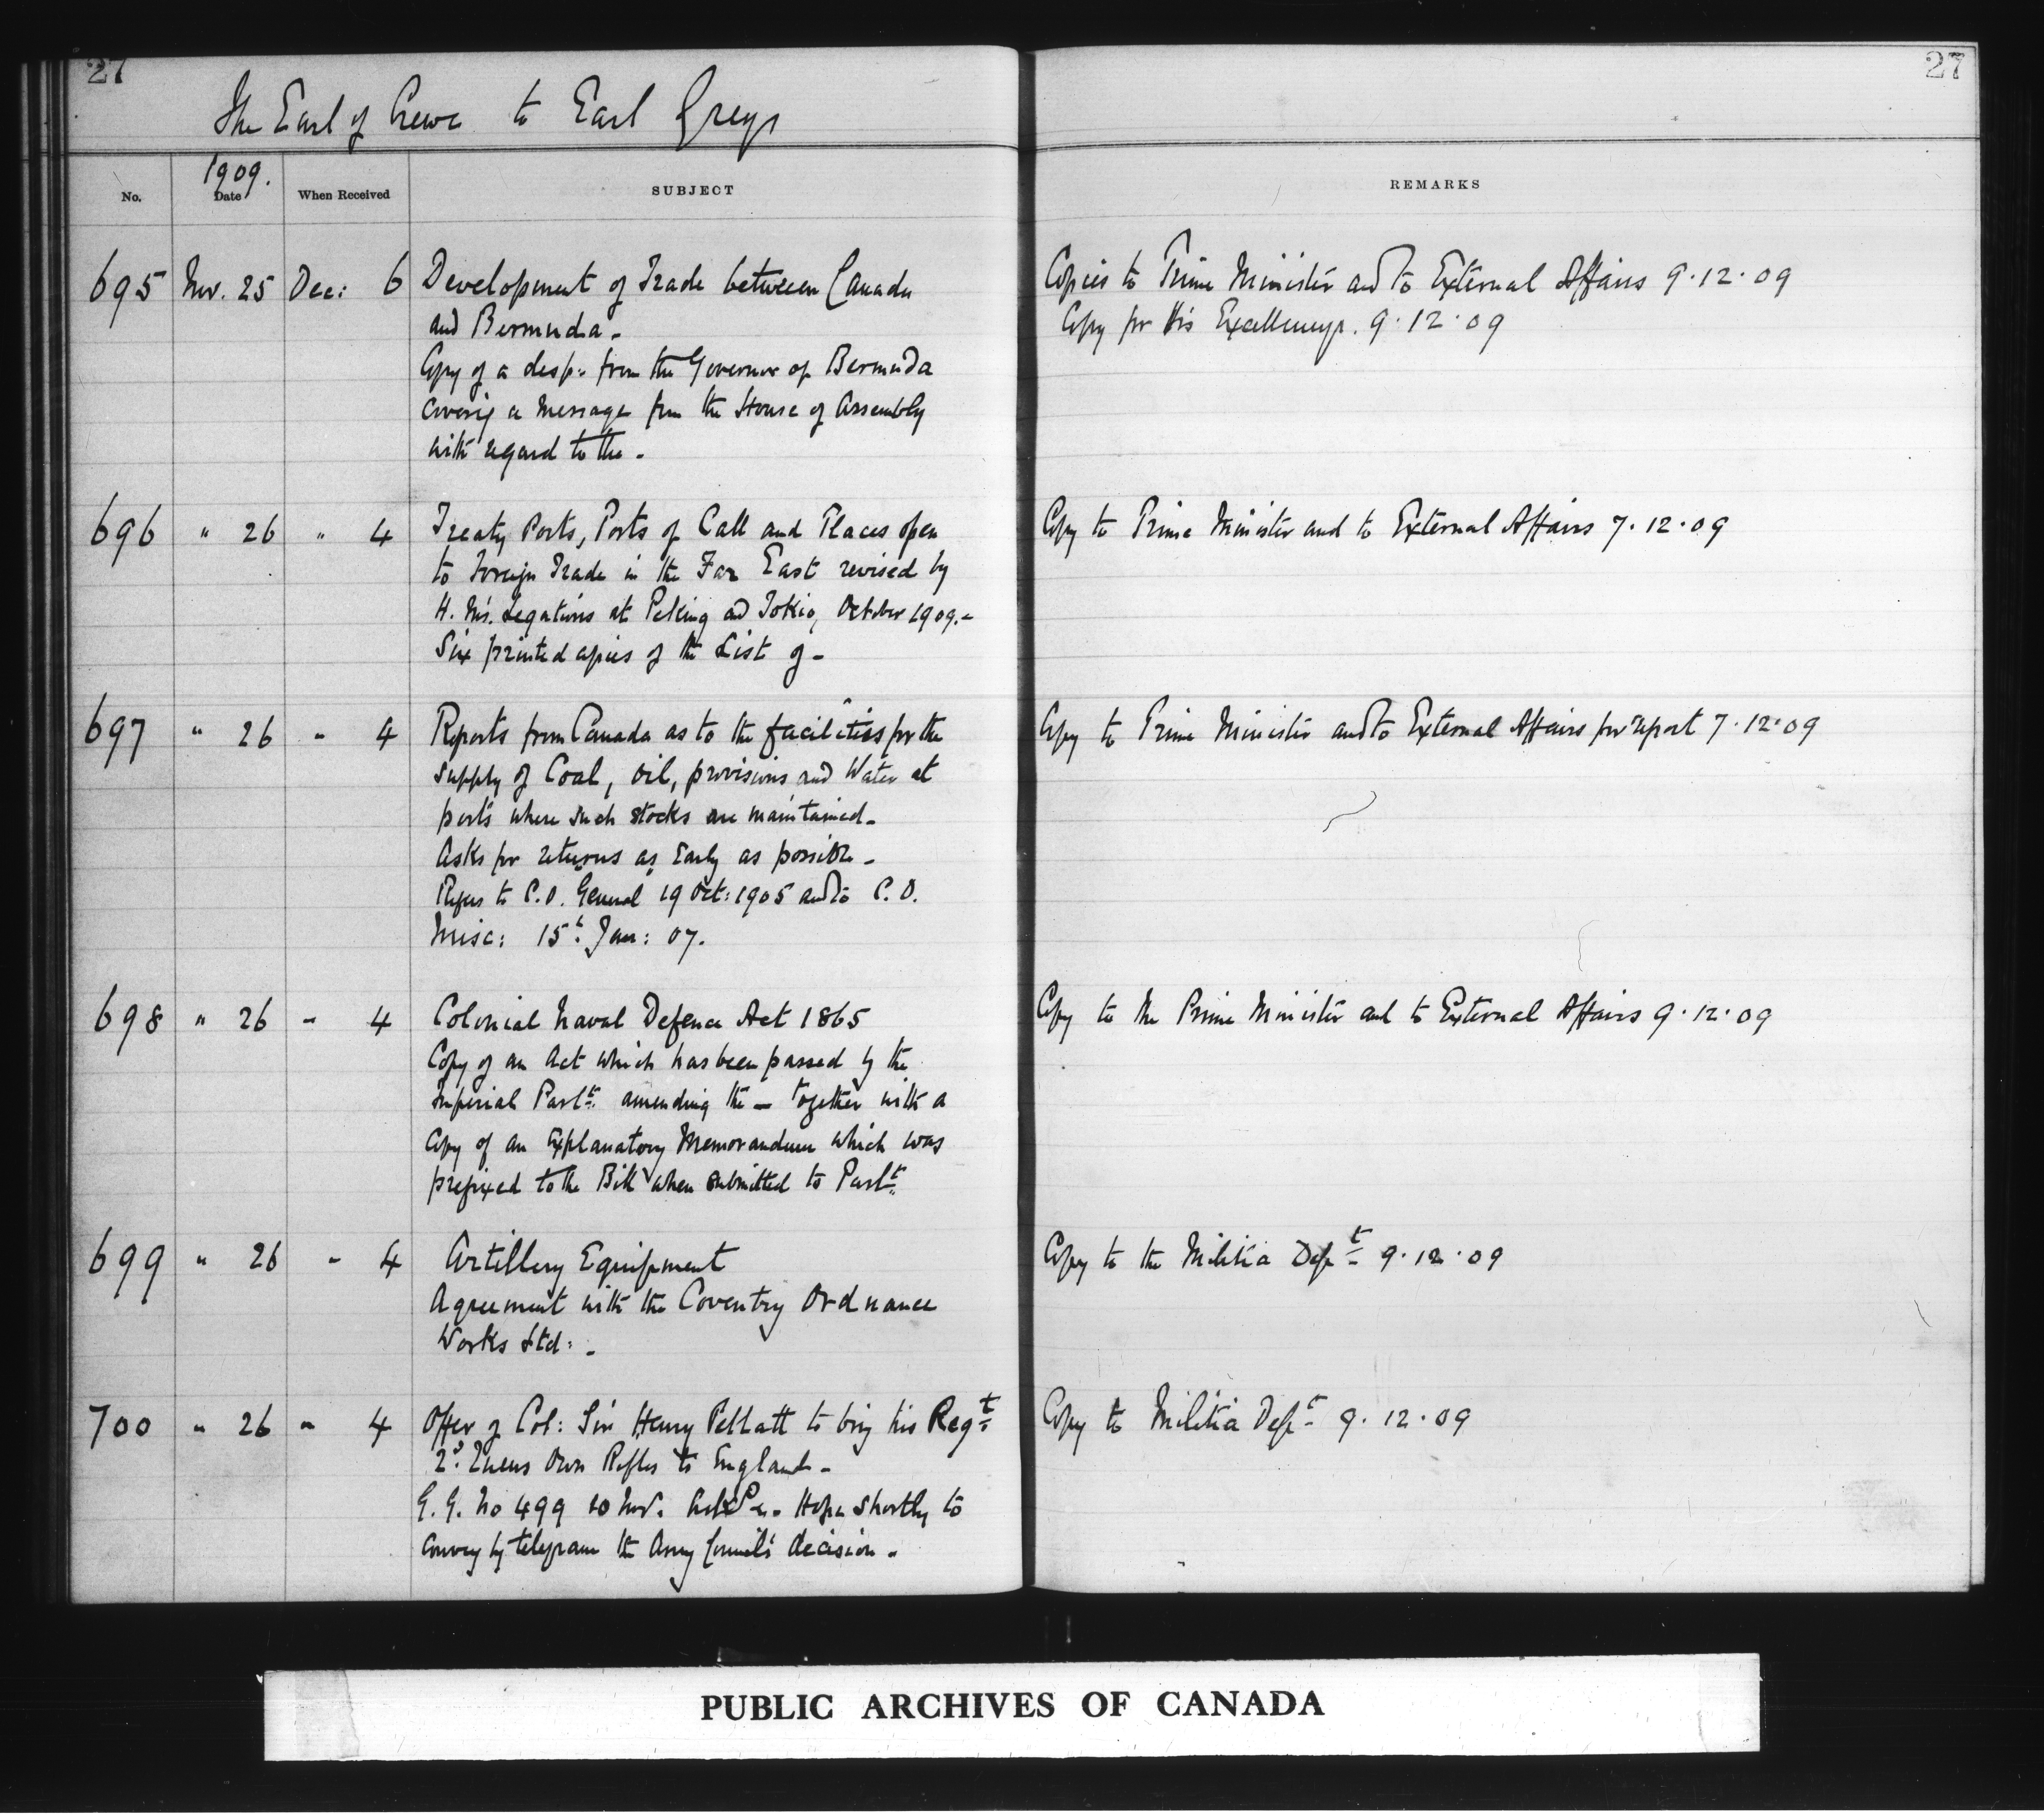 27
27
The Earl of Crewe to Earl Grey
1909.
No. Date When Received SUBJECT REMARKS
695 Nov. 25 Dec: 6 Development of Trade between Canada
and Bermuda -
Copy of a desp: from the Governor of Bermuda
covering a message from the House of Assembly
with regard to the -
Copies to Prime Minister and to External Affairs 9.12.09
Copy for His Excellency. 9.12.09
696 " 26 " 4 Treaty Ports, Ports of Call and Places open
to Foreign Trade in the Far East revised by
H. M's. Legations at Peking and Tokio, October 1909. -
Six printed copies of the List of -
Copy to Prime Minister and to External Affairs 7.12.09
697 " 26 " 4 Reports from Canada as to the facilities for the
supply of Coal, oil, provisions and Water at
ports where such stocks are maintained -
Asks for returns as early as possible -
Refers to C.O. General 19 Oct: 1905 and to C.O.
Misc: 15th Jan: 07.
Copy to Prime Minister and to External Affairs for report 7.12.09
698 " 26 " 4 Colonial Naval Defence Act 1865
Copy of an Act which has been passed by the
Imperial Parlt. amending the - together with a
copy of an explanatory Memorandum which was
prefixed to the Bill when submitted to Parlt.
Copy to the Prime Minister and to External Affairs 9.12.09
699 " 26 " 4 Artillery Equipment
Agreement with the Coventry Ordnance
Works Ltd: -
Copy to the Militia Dept 9.12.09
700 " 26 " 4 Offer of Col: Sir Henry Pellatt to bring his Regt
2d. Queens Own Rifles to England -
G. G. No 499 10 Nov. - Hope shortly to
convey by telegram the Army Council's decision -
Copy to Militia Dept 9.12.09
PUBLIC ARCHIVES OF CANADA